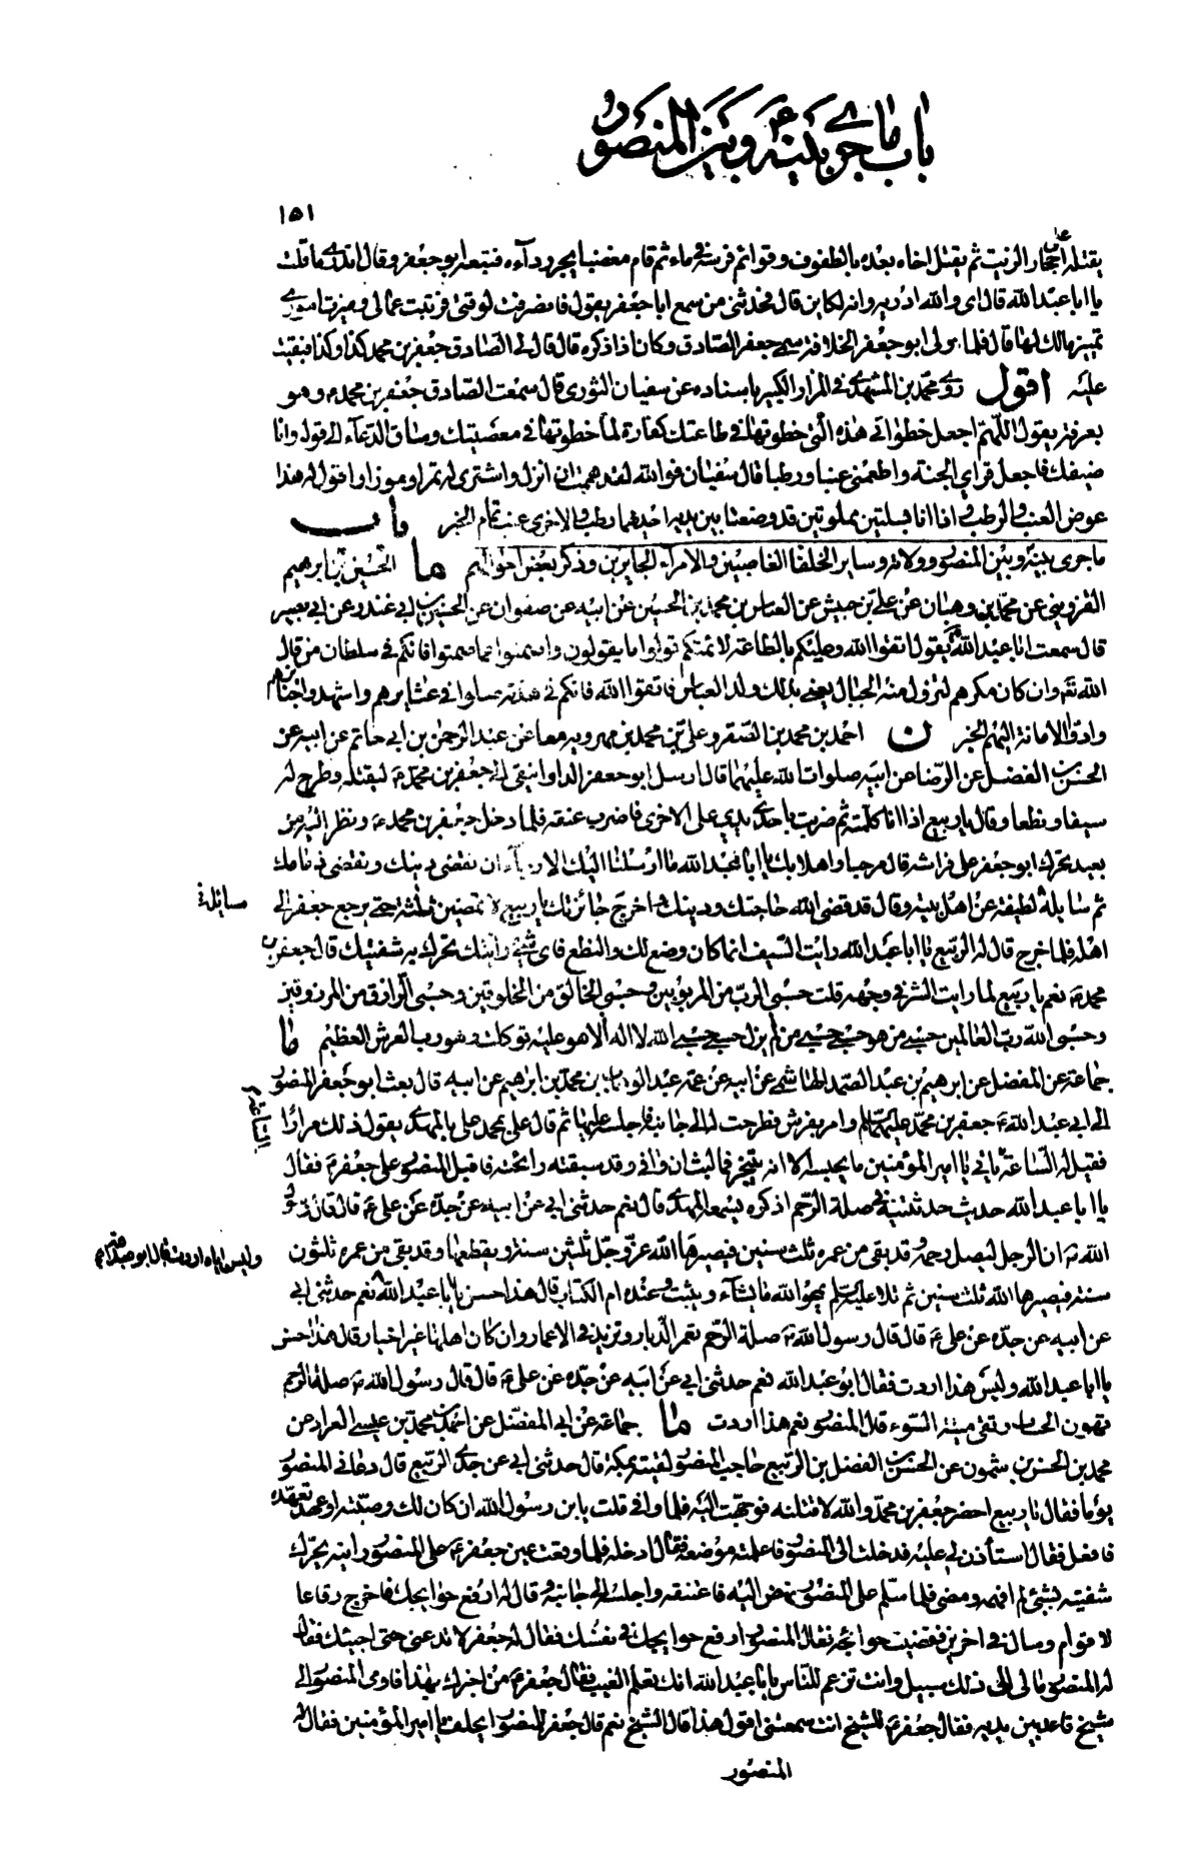 باب ما جرى بينه ع وبين المنصور
١٥١
يقتله على احجار الزيت ثم يقتل اخاه بعده بالطفوف وقوائم فرسه في ماء ثم قام مغضبا يجر رداءه فتبعه ابو جعفر وقال اتدري ما قلت
يا ابا عبد الله قال اي والله ادريه وانه لكاين قال فحدثني من سمع ابا جعفر يقول فانصرفت لوقتي فرتبت عمالي وميزت اموري
تمييز مالك لها قال فلما ولي ابو جعفر الخلافة سمى جعفر الصادق وكان اذا ذكره قال قال لي الصادق جعفر بن محمد كذا وكذا فبقيت
عليه اقول روى محمد بن المشهدي في المزار الكبير باسناده عن سفيان الثوري قال سمعت الصادق جعفر بن محمد ع وهو
بعرفة يقول اللهم اجعل خطواتي هذه التي خطوتها في طاعتك كفارة لما خطوتها في معصيتك وساق الدعاء الى قوله وانا
ضيفك فاجعل قراي الجنة واطعمني عنبا ورطبا قال سفيان فوالله لقد هممت ان انزل واشتري له تمرا وموزا واقول له هذا
عوض العنب والرطب واذا انا بسلتين مملوتين قد وضعتا بين يديه احديهما رطب والاخرى عنب تمام الخبر باب
ما جرى بينه وبين المنصور وولاته وساير الخلفا الغاصبين والامراء الجايرين وذكر بعض احوالهم ما الحسين بن ابرهيم
القزويني عن محمد بن وهبان عن علي بن حبيش عن العباس بن محمد بن الحسين عن ابيه عن صفوان عن الحسين بن ابي غندر عن ابي بصير
قال سمعت ابا عبد الله ع يقول اتقوا الله وعليكم بالطاعة لائمتكم قولوا ما يقولون واصمتوا عما صمتوا فانكم في سلطان من قال
الله تعالى وان كان مكرهم لتزول منه الجبال يعني بذلك ولد العباس فاتقوا الله فانكم في هدنة صلوا في عشايرهم واشهدوا جنايزهم
وادوا الامانة اليهم الخبر ن احمد بن محمد بن الصقر وعلي بن محمد بن مهرويه معا عن عبد الرحمن بن ابي حاتم عن ابيه عن
الحسن بن الفضل عن الرضا عن ابيه صلوات الله عليهما قال ارسل ابو جعفر الدوانيقي الى جعفر بن محمد ع ليقتله وطرح له
سيفا ونطعا وقال يا ربيع اذا انا كلمته ثم ضربت باحدى يدي على الاخرى فاضرب عنقه فلما دخل جعفر بن محمد ع ونظر اليه من
بعيد تحرك ابو جعفر على فراشه قال مرحبا واهلا بك يا ابا عبد الله ما ارسلنا اليك الا رجاء ان نقضي دينك ونقضي ذمامك
ثم سايله لطيفة عن اهل بيته وقال قد قضى الله حاجتك ودينك واخرج جائزتك يا ربيع لا تمضين ثلثة حتى يرجع جعفر الى
مسائلة
اهله فلما خرج قال له الربيع يا ابا عبد الله رايت السيف انما كان وضع لك والنطع فاي شيء رايتك تحرك به شفتيك قال جعفر بن
محمد ع نعم يا ربيع لما رايت الشر في وجهه قلت حسبي الرب من المربوبين وحسبي الخالق من المخلوقين وحسبي الرازق من المرزوقين
وحسبي الله رب العالمين حسبي من هو حسبي حسبي من لم يزل حسبي حسبي الله لا اله الا هو عليه توكلت وهو رب العرش العظيم ما
جماعة عن المفضل عن ابرهيم بن عبد الصمد الهاشمي عن ابيه عن عمه عبد الوهاب بن محمد بن ابرهيم عن ابيه قال بعث ابو جعفر المنصور
الى ابي عبد الله ع جعفر بن محمد عليهما السلام وامر بفرش فطرحت له الى جانبه فاجلسه عليها ثم قال علي بمحمد علي بالمهدي يقول ذلك مرارا
فقيل له الساعة يأتي يا امير المؤمنين ما يحبسه الا انه يتبخر فما لبث ان وافى وقد سبقته رائحته فاقبل المنصور على جعفر ع فقال
يا ابا عبد الله حديث حدثتنيه في صلة الرحم اذكره يسمعه المهدي قال نعم حدثني ابي عن ابيه عن جده عن علي ع قال قال رسول
الله ص ان الرجل ليصل رحمه وقد بقي من عمره ثلث سنين فيصيرها الله عز وجل ثلثين سنة ويقطعها وقد بقي من عمره ثلثون
سنة فيصيرها الله ثلث سنين ثم تلا عليه السلام يمحو الله ما يشاء ويثبت وعنده ام الكتاب قال هذا حسن يا ابا عبد الله نعم حدثني ابي
وليس اياه اردت فقال ابو عبد الله
عن ابيه عن جده عن علي ع قال قال رسول الله ص صلة الرحم تعمر الديار وتزيد في الاعمار وان كان اهلها غير اخيار قال هذا حسن
يا ابا عبد الله وليس هذا اردت فقال ابو عبد الله نعم حدثني ابي عن ابيه عن جده عن علي ع قال قال رسول الله ص صلة الرحم
تهون الحساب وتقي ميتة السوء قال المنصور نعم هذا اردت ما جماعة عن ابي المفضل عن احمد بن محمد بن عيسى العراد عن
محمد بن الحسن بن شمون عن الحسن بن الفضل بن الربيع حاجب المنصور لقيته بمكة قال حدثني ابي عن جدي الربيع قال دعاني المنصور
يوما فقال يا ربيع احضر جعفر بن محمد والله لاقتلنه فوجهت اليه فلما وافى قلت يا بن رسول الله ان كان لك وصية او عهد تعهده
فافعل فقال استأذن لي عليه فدخلت الى المنصور فاعلمته موضعه فقال ادخله فلما وقعت عين جعفر ع على المنصور رايته يحرك
شفتيه بشيء لم افهمه ومضى فلما سلم على المنصور نهض اليه فاعتنقه واجلسه الى جانبه وقال له ارفع حوايجك فاخرج رقاعا
لاقوام وسال في اخرين فقضيت حوائجه فقال المنصور ارفع حوايجك في نفسك فقال له جعفر لا تدعني حتى اجيئك فقال
له المنصور ما لي الى ذلك سبيل وانت تزعم للناس يا ابا عبد الله انك تعلم الغيب فقال جعفر ع من اخبرك بهذا فاومى المنصور الى
شيخ قاعد بين يديه فقال جعفر ع للشيخ انت سمعتني اقول هذا قال الشيخ نعم قال جعفر للمنصور ايحلف يا امير المؤمنين فقال له
المنصور